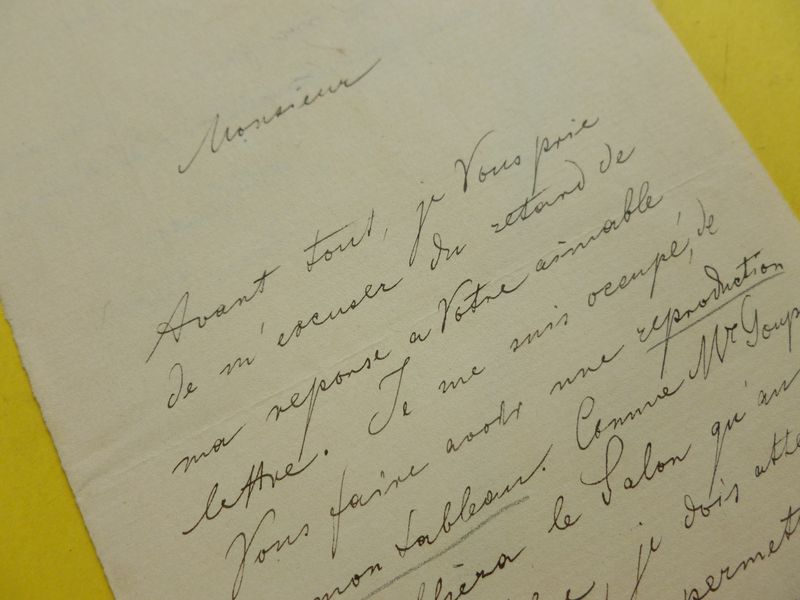 Monsieur
Avant tout, je Vous prie
de m'excuser du retard de
ma reponse a Votre aimable
lettre. Je me suis occupé, de
Vous faire avoir une reproduction
mon tableau. Comme Mr Goup
le Salon qu'au
je dois atte
permett